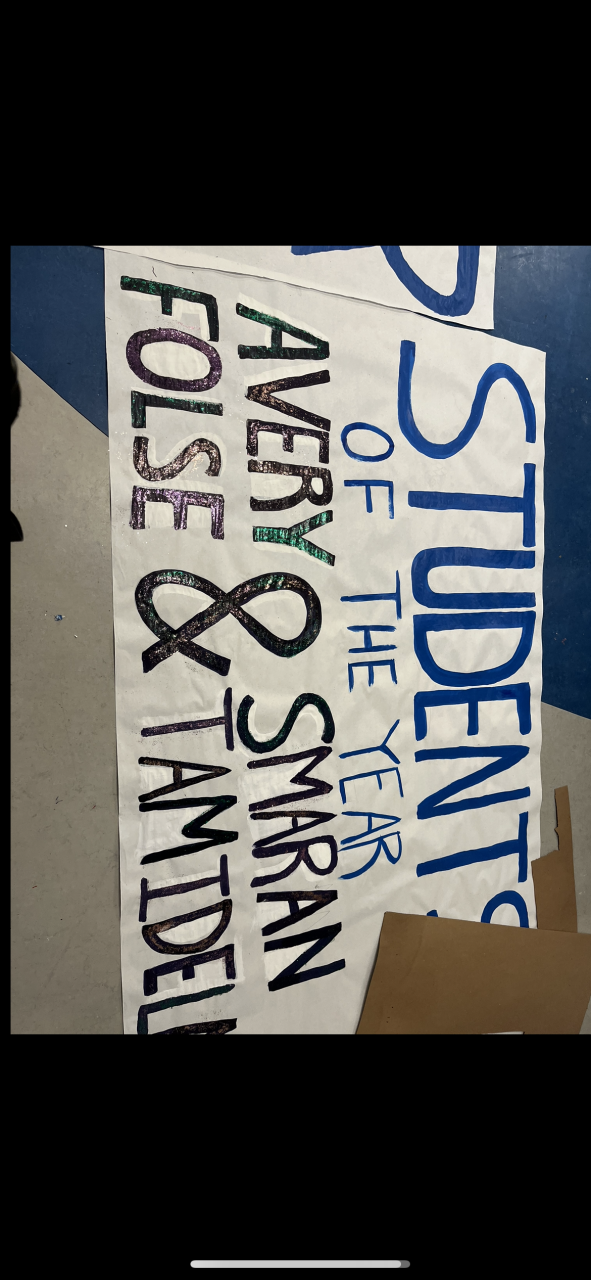 STUDENTS
OF THE YEAR
AVERY & SMARAN
FOLSE